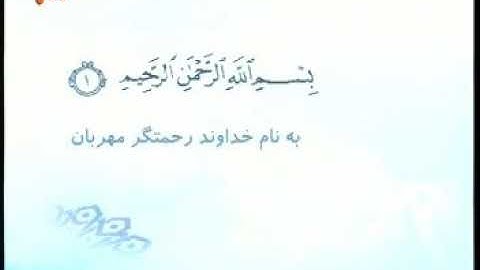 بِسْمِ اللَّهِ الرَّحْمَٰنِ الرَّحِيمِ ﴿١﴾
به نام خداوند رحمتگر مهربان